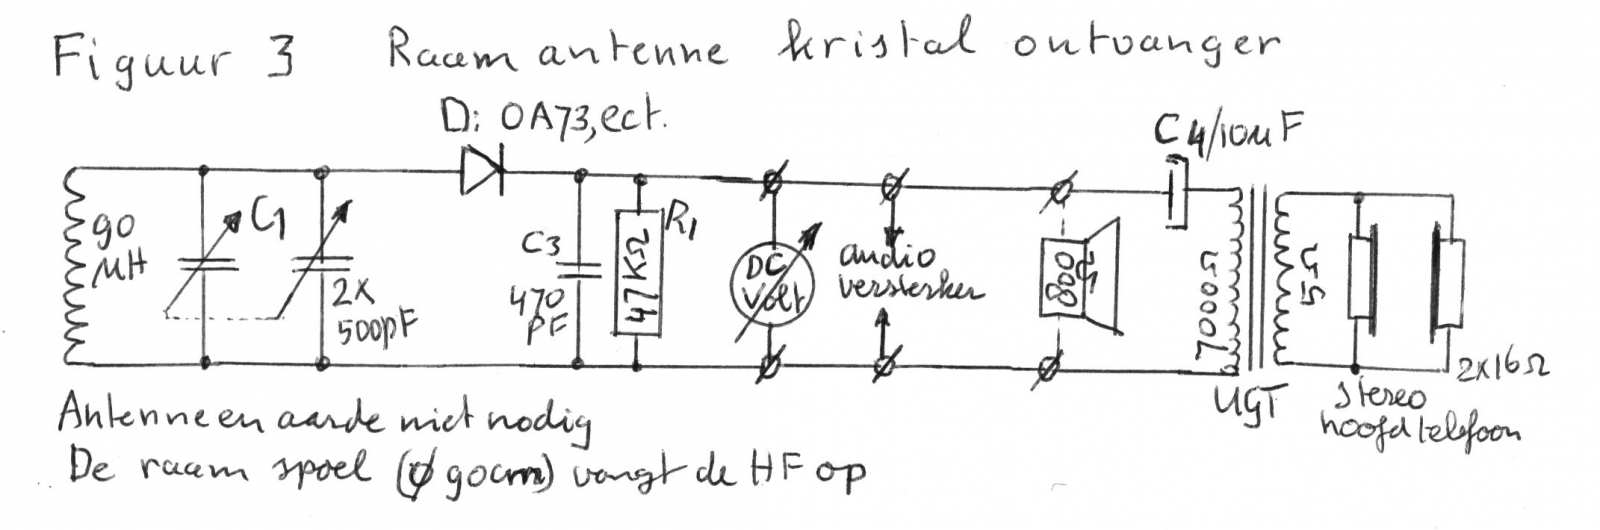 Figuur 3 Raam antenne kristal ontvanger
D: OA73, ect.
C4/10μF
90
μH
C1
2x
500pF
C3
470
PF
47KΩ
R1
DC
Volt
audio
versterker
800Ω
7000Ω
5Ω
UGT
2x16Ω
stereo
hoofdtelefoon
Antenne en aarde niet nodig
De raam spoel (ø 90cm) vangt de HF op